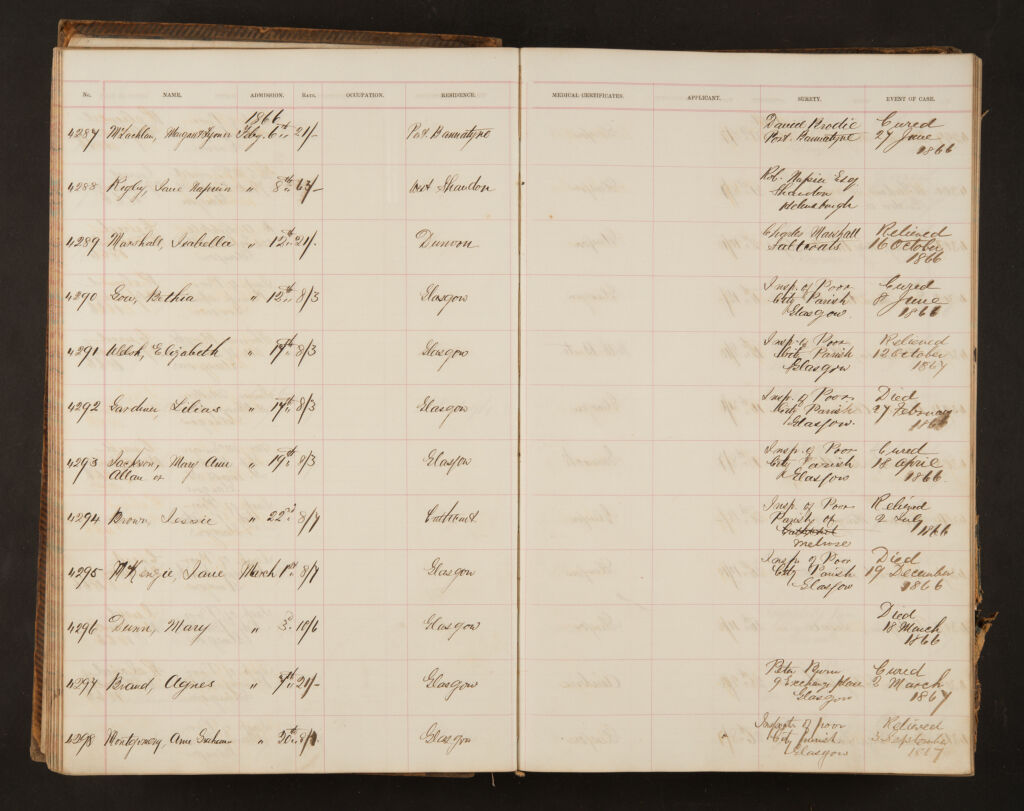 No. NAME. ADMISSION. RATE. OCCUPATION. RESIDENCE. MEDICAL CERTIFICATES. APPLICANT. SURETY. EVENT OF CASE.
1866
4287 McLachlan, Margaret Feby. 6th 21/- Port Bannatyne David Brodie Cured
Port Bannatyne 27 June
1866
4288 Rigby, Jane Napier " 8th 63/- West Shandon Rob. Napier Esq
Shandon
Helensburgh
4289 Marshall, Isabella " 12th 21/- Dunoon Charles Marshall Relieved
Saltcoats 16 October
1866
4290 Gow, Bethia " 12th 8/3 Glasgow Insp. of Poor Cured
City Parish 8 June
Glasgow. 1866
4291 Welsh, Elizabeth " 17th 8/3 Glasgow Insp. of Poor Relieved
City Parish 12 October
Glasgow 1867
4292 Gardner, Lilias " 17th 8/3 Glasgow Insp. of Poor Died
City Parish 27 February
Glasgow. 1866
4293 Jackson, Mary Ann " 19th 8/3 Glasgow Insp. of Poor Cured
Allan or City Parish 18 April
Glasgow 1866.
4294 Brown, Jessie " 22nd 8/7 Cathcart Insp. of Poor Relieved
Parish of 2 July
Cathcart 1866
Melrose
4295 McKenzie, Jane March 1st 8/7 Glasgow Insp. of Poor Died
City Parish 19 December
Glasgow 1866
4296 Dunn, Mary " 3d 10/6 Glasgow Died
18 March
1866
4297 Brand, Agnes " 7th 21/- Glasgow Peter Cured
9 Exchange place 2 March
Glasgow 1867
4298 Montgomery, Ann Graham " 30th Glasgow Inspector of poor Relieved
City parish 3 September
Glasgow 1867